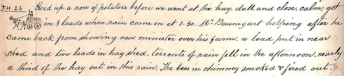 TH 23 Hoed up a row of potatoes before we went at the hay, dull and close, calm, got
in 3 loads when rain came on at 1.30. Mr Baumgart helping after he
came back from showing new minister over his farm. a load put in near
shed and two loads in hay shed. torrents of rain fell in the afternoon. nearly
a third of the hay out in this rain. The bees in chimney smoked & fired out.